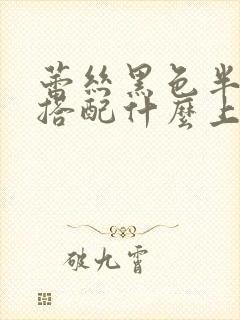 蕾丝黑色半
搭配什麼上
破九霄